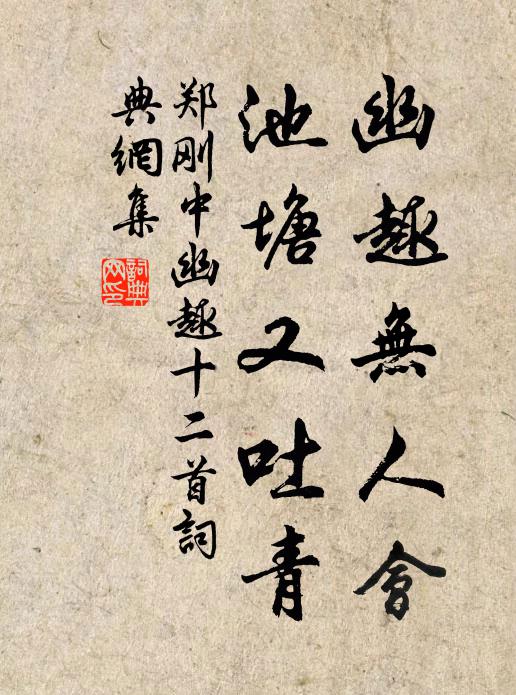 幽趣無人會
池塘又吐青
郑刚中幽趣十二首詞
典網集
詞典
网印